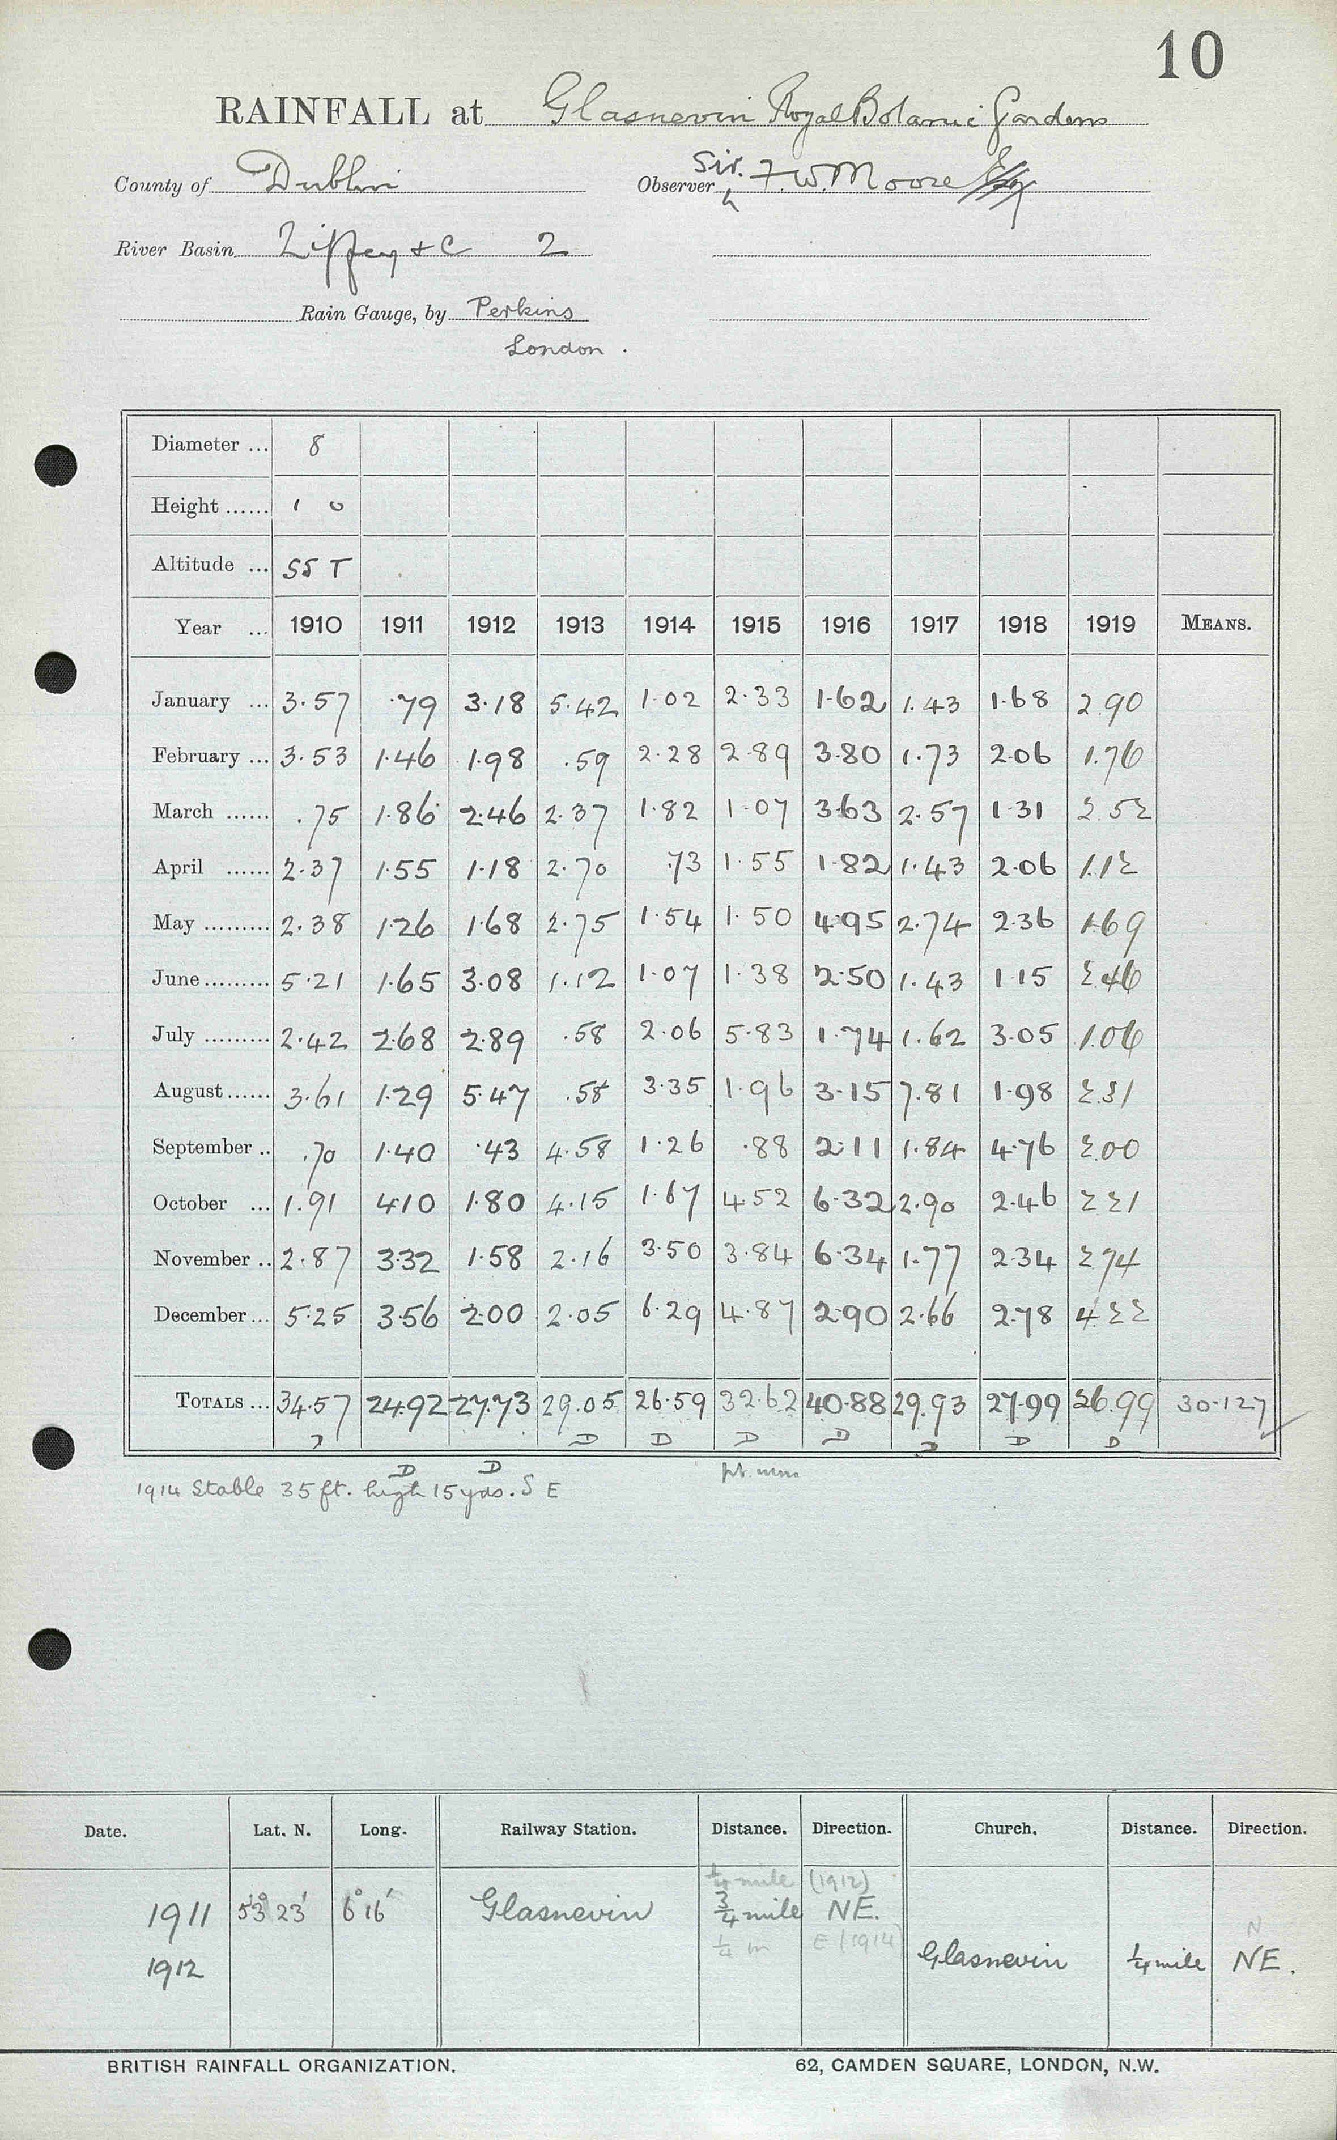 10
RAINFALL at Glasnevin Royal Botanic Gardens
County of Dublin Observer Sir. F.W. Moore Esq
River Basin Liffey & C 2
Rain Gauge, by Perkins
London.
Diameter ... 8
Height ...... 1 0
Altitude ... 55 T
Year ... 1910 1911 1912 1913 1914 1915 1916 1917 1918 1919 MEANS.
January ... 3.57 .79 3.18 5.42 1.02 2.33 1.62 1.43 1.68 2.90
February ... 3.53 1.46 1.98 .59 2.28 2.89 3.80 1.73 2.06 1.76
March ...... .75 1.86 2.46 2.37 1.82 1.07 3.63 2.57 1.31 2.52
April ...... 2.37 1.55 1.18 2.70 .73 1.55 1.82 1.43 2.06 1.12
May ......... 2.38 1.26 1.68 2.75 1.54 1.50 4.95 2.74 2.36 1.69
June ......... 5.21 1.65 3.08 1.12 1.07 1.38 2.50 1.43 1.15 2.46
July ......... 2.42 2.68 2.89 .58 2.06 5.83 1.74 1.62 3.05 1.06
August ...... 3.61 1.29 5.47 .58 3.35 1.96 3.15 7.81 1.98 2.31
September .. .70 1.40 .43 4.58 1.26 .88 2.11 1.84 4.76 2.00
October ... 1.91 4.10 1.80 4.15 1.67 4.52 6.32 2.90 2.46 2.21
November .. 2.87 3.32 1.58 2.16 3.50 3.84 6.34 1.77 2.34 2.74
December ... 5.25 3.56 2.00 2.05 6.29 4.87 2.90 2.66 2.78 4.22
TOTALS ... 34.57 24.92 27.73 29.05 26.59 32.62 40.88 29.93 27.99 26.99 30.127
D D D D D D D D D D
1914 Stable 35 ft. high 15 yds. S E
Date. Lat. N. Long. Railway Station. Distance. Direction. Church. Distance. Direction.
1/4 mile (1912)
1911 53° 23' 6° 16' Glasnevin 3/4 mile NE.
1/4 m E (1914) N
1912 Glasnevin 1/4 mile NE.
BRITISH RAINFALL ORGANIZATION. 62, CAMDEN SQUARE, LONDON, N.W.